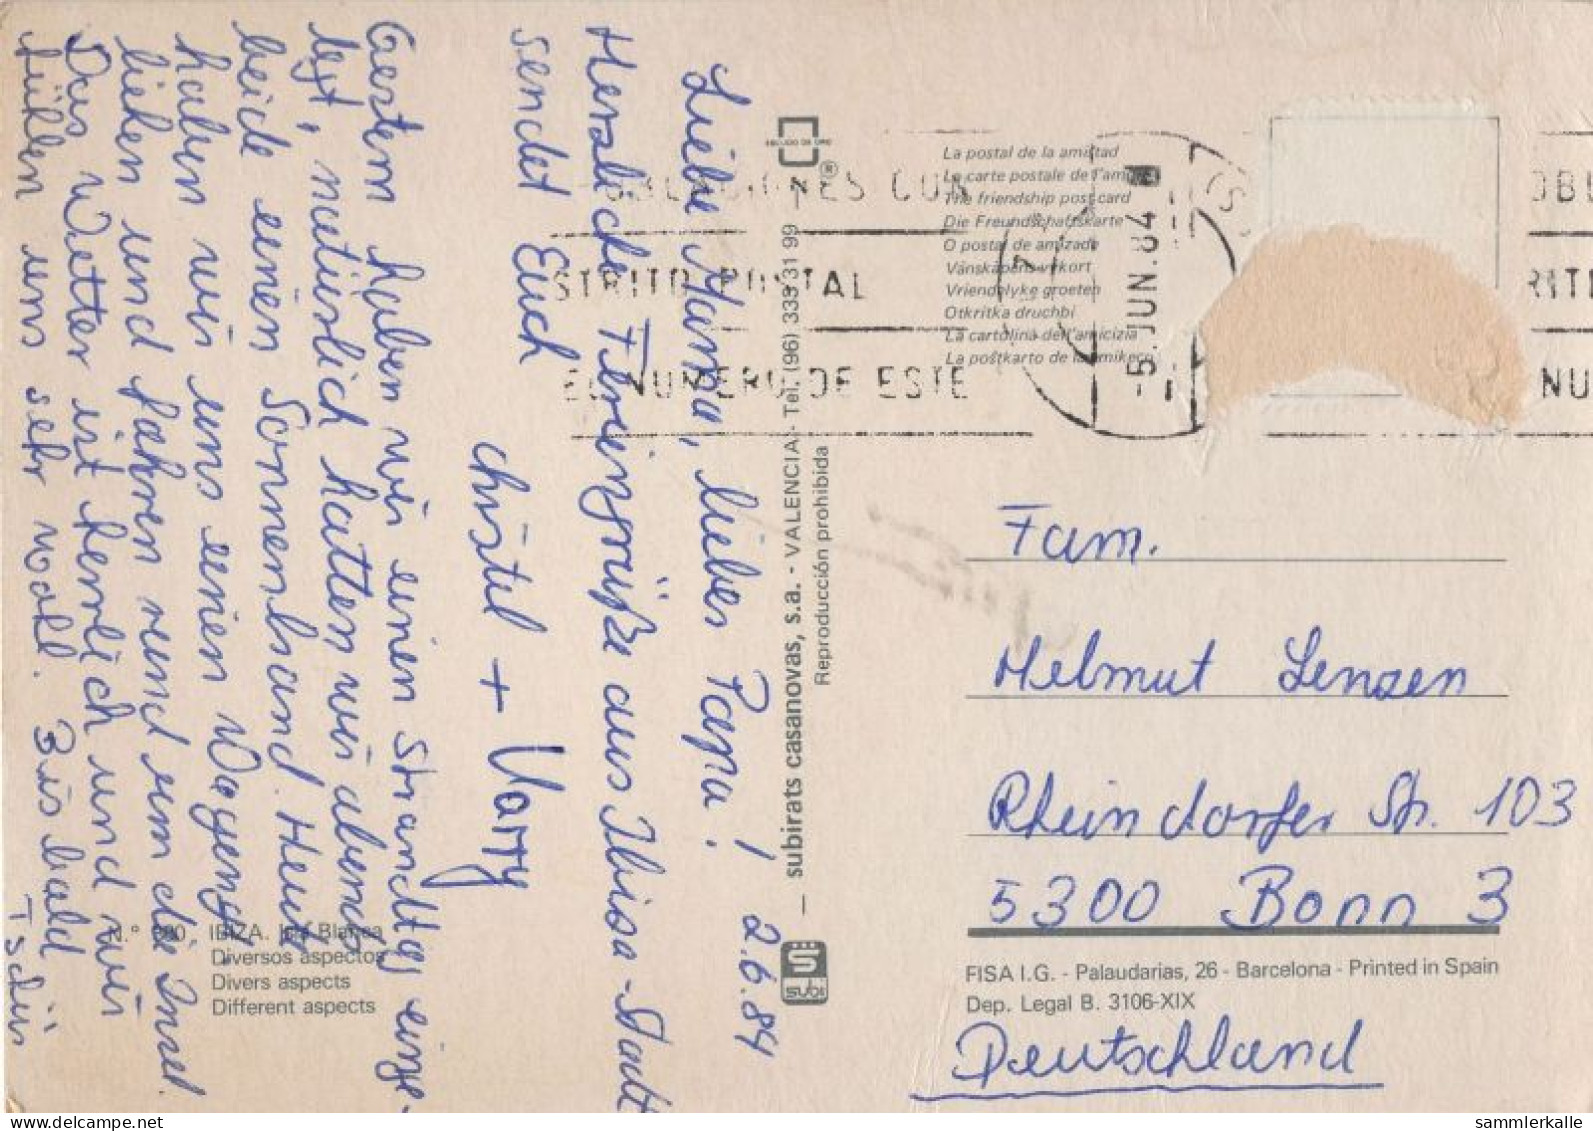 2.6.84
Liebe Mama, lieber Papa!
Herzliche Feriengrüße aus Ibiza-Stadt
sendet Euch
Christel + Harry
Gestern haben wir einen Strandtag einge-
legt, natürlich hatten wir abends
beide einen Sonnenbrand. Heute
haben wir uns einen Wagen ge-
liehen und fahren rund um die Insel.
Das Wetter ist herrlich und wir
fühlen uns sehr wohl. Bis bald
Tschüs
ESCUDO DE ORO
®
subirats casanovas, s.a. - VALENCIA - Tel. (96) 333 31 99
Reproducción prohibida
subi
N.º IBIZA. Isla Blanca
Diversos aspectos
Divers aspects
Different aspects
La postal de la amistad
La carte postale de l'amitié
The friendship post card
Die Freundschaftskarte
O postal de amizade
Vänskapens vykort
Vriendelyke groeten
Otkritka druchbi
La cartolina dell'amicizia
La poŝtkarto de la amikeco
POSTAL
NUMERO DE ESTE
-5.JUN.84
NU
Fam.
Helmut Lenzen
Rheindorfer Str. 103
5300 Bonn 3
FISA I.G. - Palaudarias, 26 - Barcelona - Printed in Spain
Dep. Legal B. 3106-XIX
Deutschland
sammlerkalle